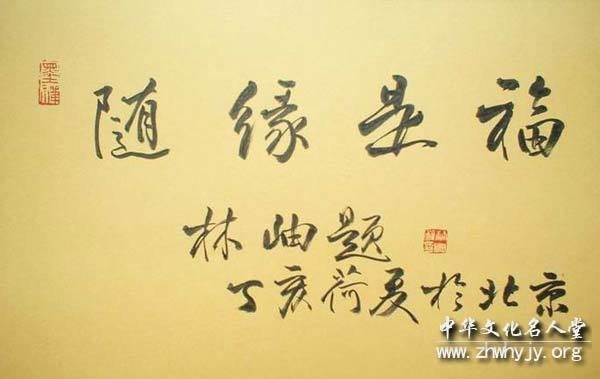 随缘是福
林岫题
丁亥荷夏於北京
中华文化名人堂
www.zhwhyjy.org